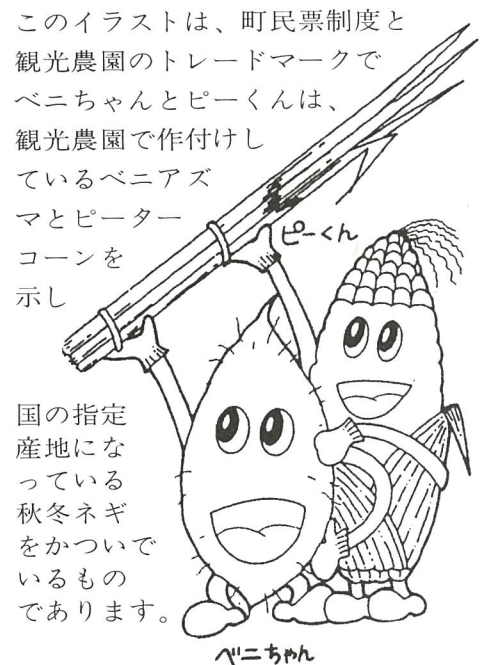 このイラストは、町民票制度と
観光農園のトレードマークで
ベニちゃんとピーくんは、
観光農園で作付けし
ているベニアズ
マとピーター
コーンを
示し
ピーくん
国の指定
産地にな
っている
秋冬ネギ
をかついで
いるもの
であります。
ベニちゃん